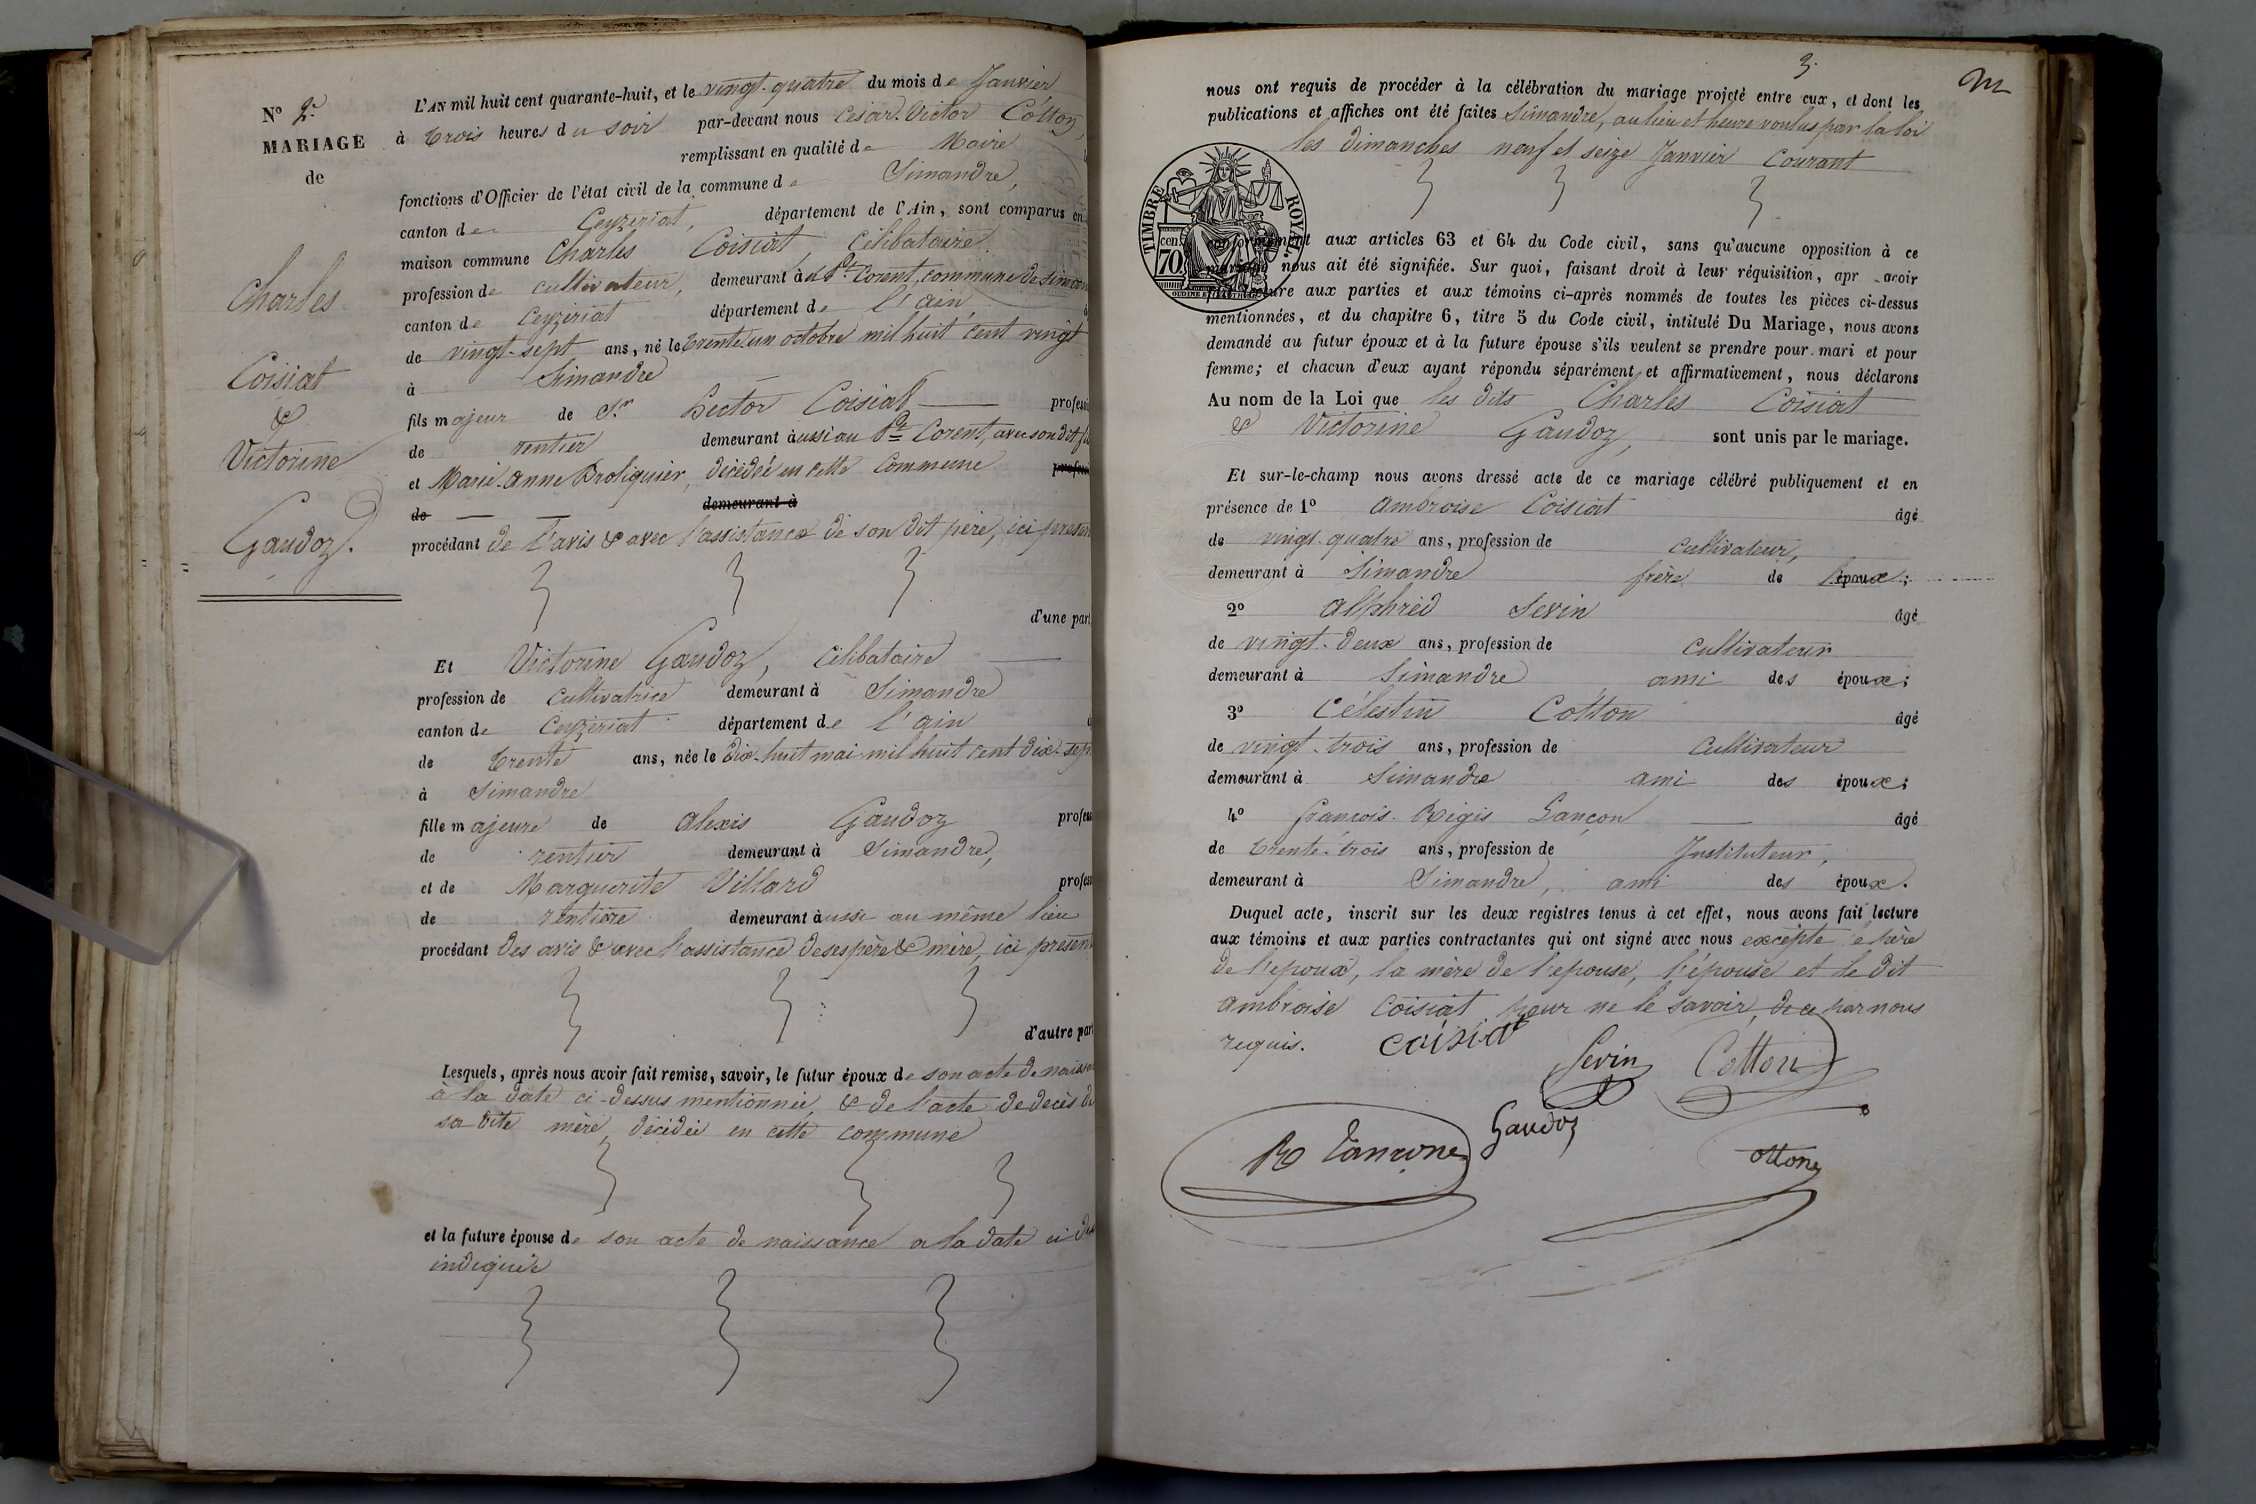 N° 2.
MARIAGE
de
Charles
Coisiat
&
Victorine
Gaudoz.
L'AN mil huit cent quarante-huit, et le vingt-quatre du mois de Janvier
à trois heures du soir par-devant nous César-Victor Cotton,
remplissant en qualité de Maire
fonctions d'Officier de l'état civil de la commune de Simandre,
canton de Ceyzeriat, département de l'Ain, sont comparus en
maison commune Charles Coisiat, Célibataire,
profession de cultivateur, demeurant au Pt. Corent, commune de Siman
canton de Ceyzeriat département de l'ain,
de vingt-sept ans, né le trente-un octobre mil huit cent vingt
à Simandre
fils majeur de Sr. hector Coisiat professi
de rentier demeurant aussi au Pt. Corent, avec son dit fils
et Marie-Anne Broliquier, décédée en cette commune profess
de demeurant à
procédant de l'avis & avec l'assistance de son dit père, ici présen
d'une part
Et Victorine Gaudoz, célibataire
profession de cultivatrice demeurant à Simandre
canton de Ceyzeriat département de l'ain
de trente ans, née le dix-huit mai mil huit cent dix-sept
à Simandre
fille majeure de alexis Gaudoz profess
de rentier demeurant à Simandre,
et de Marguerite Villard profess
de rentière demeurant aussi au même lieu
procédant des avis & avec l'assistance de ses père & mère, ici présen
d'autre par
Lesquels, après nous avoir fait remise, savoir, le futur époux de son acte de naissa
à la date ci-dessus mentionnée, & de l'acte de décès de
sa dite mère, décédée en cette commune
et la future épouse de son acte de naissance a la date ci des
indiquée
3.
m
nous ont requis de procéder à la célébration du mariage projeté entre eux, et dont les
publications et affiches ont été faites Simandre, au lieu et heure voulus par la loi
les dimanches neuf et seize Janvier Courant
TIMBRE ROYAL
70 cen.
conformément aux articles 63 et 64 du Code civil, sans qu'aucune opposition à ce
mariage nous ait été signifiée. Sur quoi, faisant droit à leur réquisition, apr avoir
lecture aux parties et aux témoins ci-après nommés de toutes les pièces ci-dessus
mentionnées, et du chapitre 6, titre 5 du Code civil, intitulé Du Mariage, nous avons
demandé au futur époux et à la future épouse s'ils veulent se prendre pour mari et pour
femme; et chacun d'eux ayant répondu séparément et affirmativement, nous déclarons
Au nom de la Loi que les dits Charles Coisiat
& Victorine Gaudoz, sont unis par le mariage.
Et sur-le-champ nous avons dressé acte de ce mariage célébré publiquement et en
présence de 1° Ambroise Coisiat âgé
de vingt-quatre ans, profession de cultivateur,
demeurant à Simandre frère de l'époux;
2° alphrèd Sevin âgé
de vingt-deux ans, profession de cultivateur
demeurant à Simandre ami des époux;
3° Célestin Cotton âgé
de vingt-trois ans, profession de cultivateur
demeurant à Simandre ami des époux;
4° françois-Régis Lançon âgé
de trente-trois ans, profession de Instituteur,
demeurant à Simandre, ami des époux.
Duquel acte, inscrit sur les deux registres tenus à cet effet, nous avons fait lecture
aux témoins et aux parties contractantes qui ont signé avec nous excepté le père
de l'époux, la mère de l'épouse, l'épouse et le dit
ambroise Coisiat pour ne le savoir, de ce par nous
requis. coisiat
Sevin Cotton
Gaudoz
R Lançon
Cotton